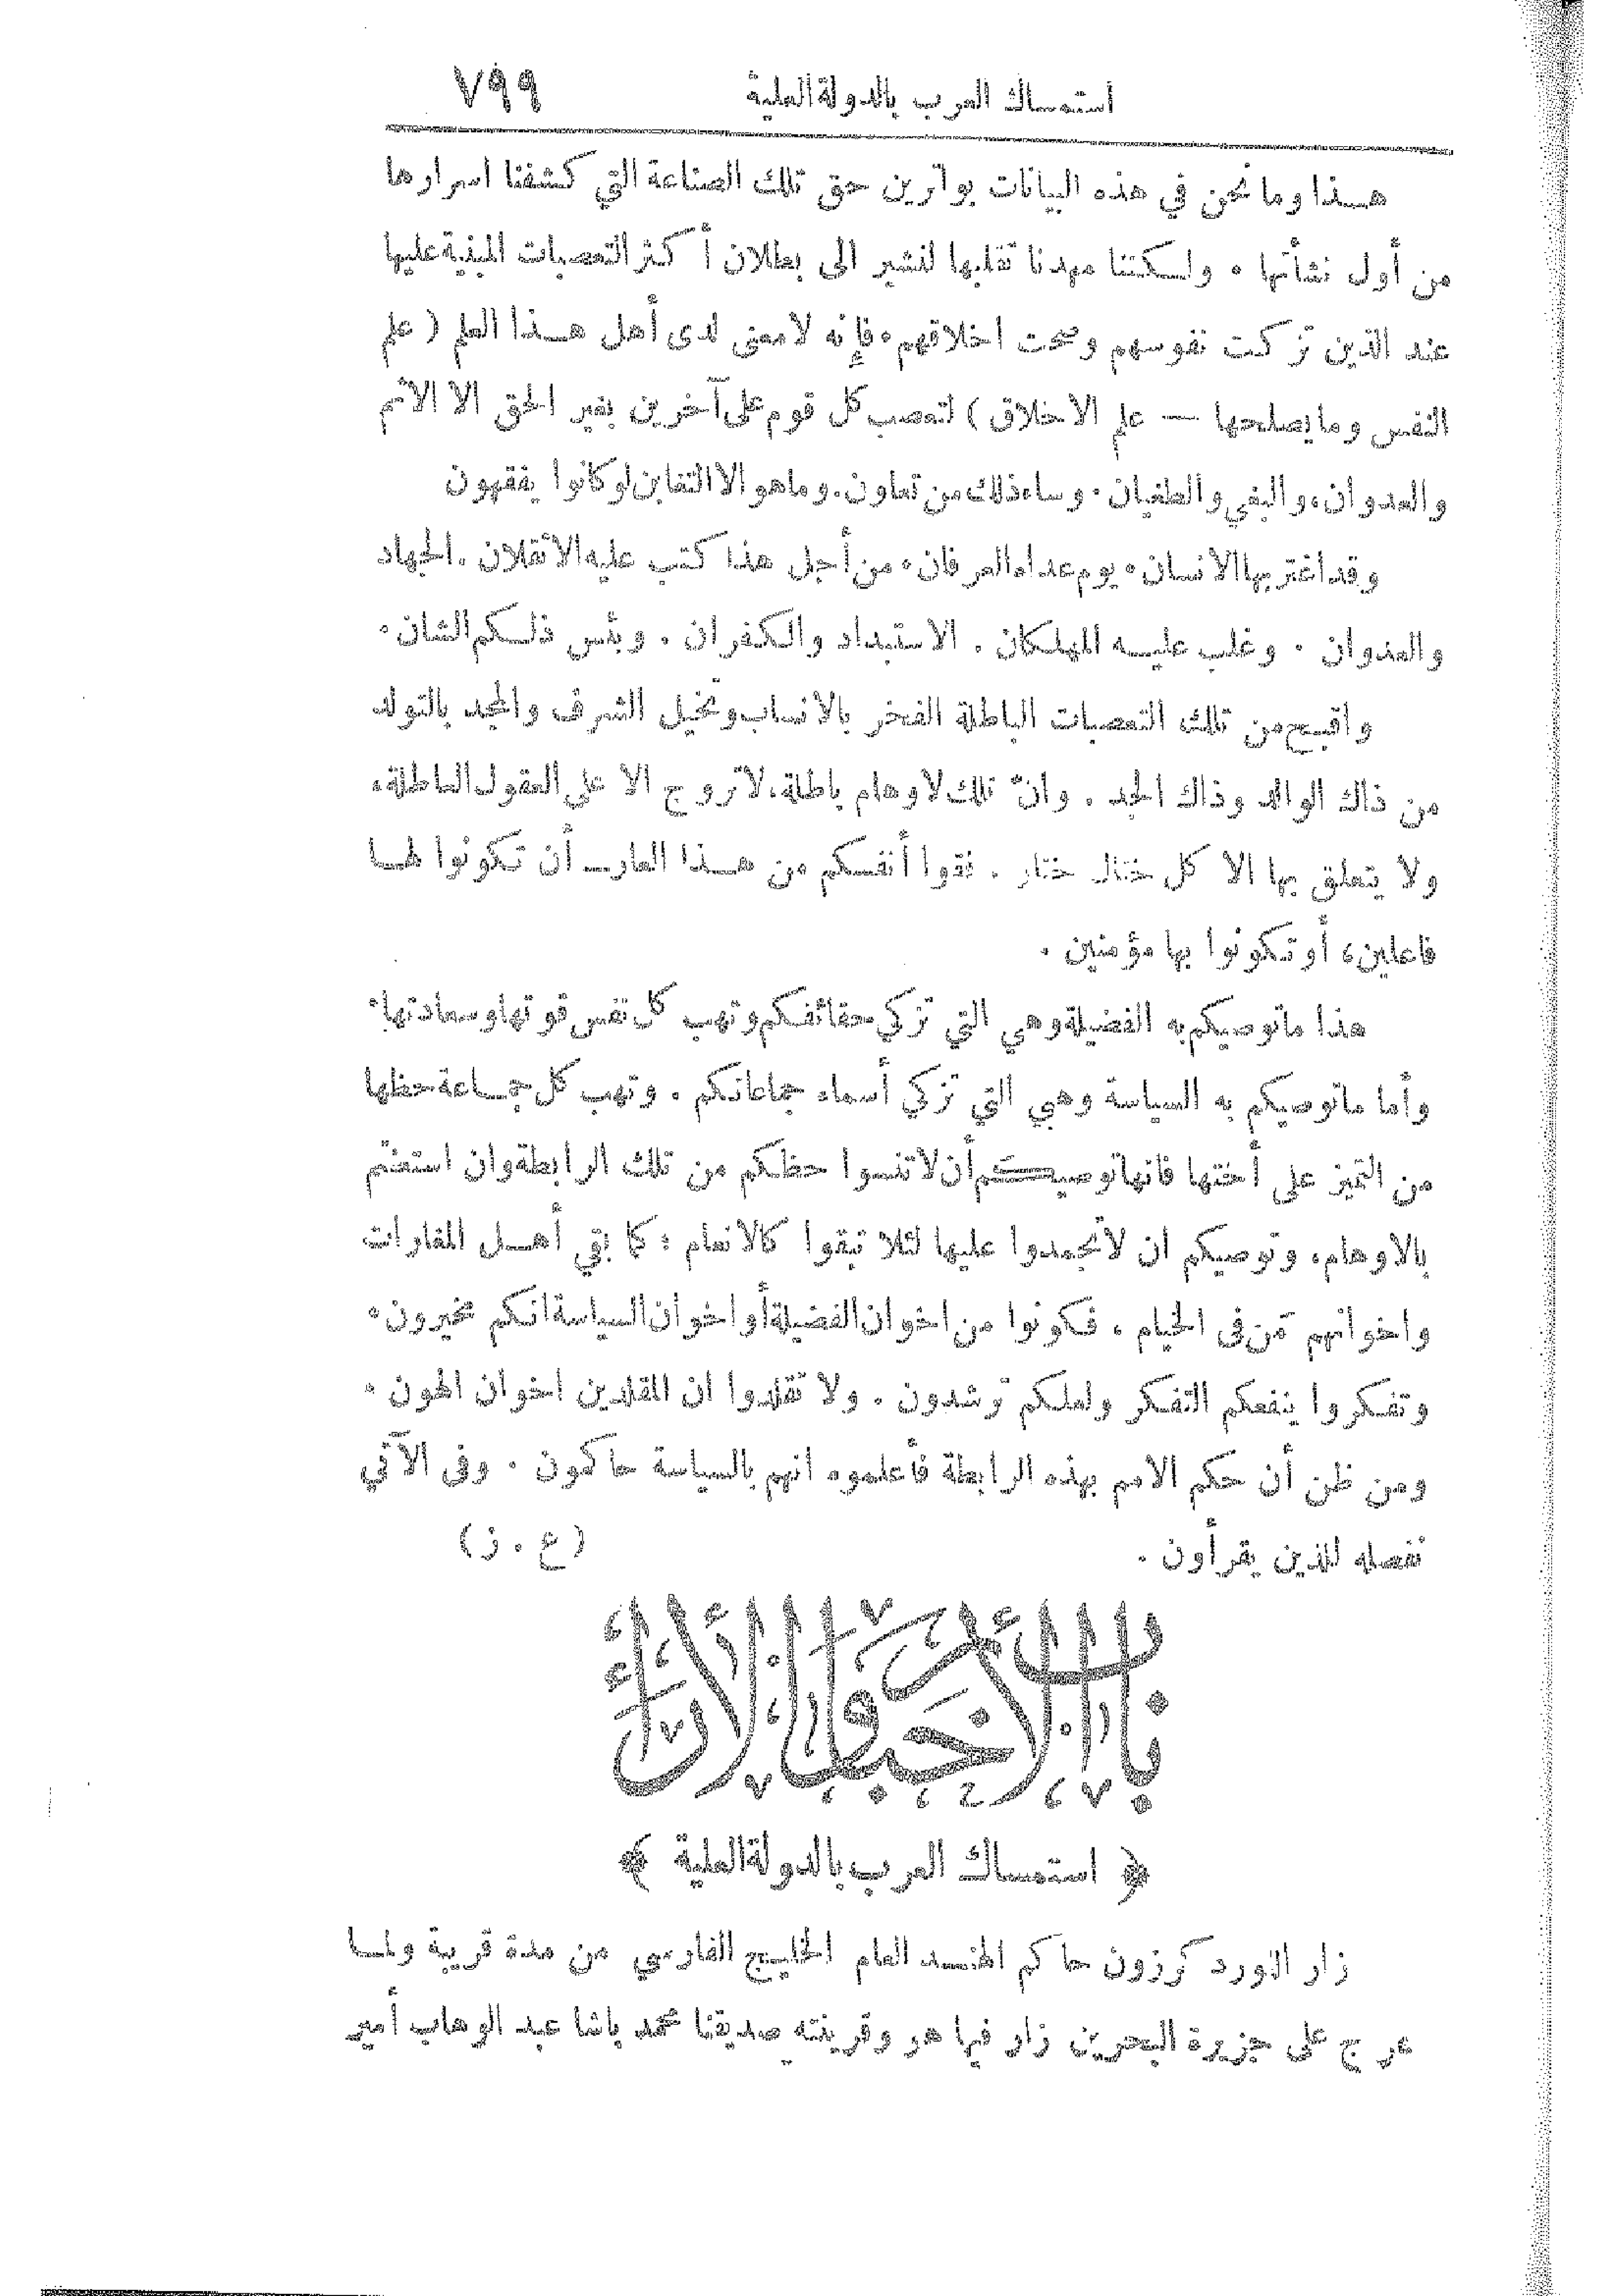 استمساك العرب بالدولة العلية ٧٩٩
هـذا وما نحن في هذه البيانات بواترين حق تلك الصناعة التي كشفنا اسرارها
من أول نشأتها ٠ ولـكننا مهدنا تقلبها لنشير الى بطلان أكثر التعصبات المبنية عليها
عند الذين تزكت نفوسهم وصحت اخلاقهم ٠ فإنه لا معنى لدى أهل هـذا العلم ( علم
النفس وما يصلحها — علم الاخلاق ) لتعصب كل قوم على آخرين بغير الحق الا الاثم
والعدوان، والبغي والطغيان ٠ وساء ذلك من تعاون. وما هو الا التغابن لو كانوا يفقهون
وقد اغتر بها الانسان ٠ يوم عداه العرفان ٠ من أجل هذا كتب عليه الاثقلان . الجهاد
والعدوان ٠ وغلب عليـه المهلـكان . الاستبداد والـكفران . وبئس ذلـكم الشان ٠
واقبـح من تلك التعصبات الباطلة الفخر بالانساب وتخيل الشرف والمجد بالتولد
من ذاك الوالد وذاك الجد . وانّ تلك لاوهام باطلة، لا تروج الا على العقول العاطلة،
ولا يتعلق بها الا كل ختال ختار . فقوا أنفسكم من هـذا العارـ أن تـكونوا لهـا
فاعلين، أو تـكونوا بها مؤمنين .
هذا ما توصيكم به الفضيلة وهي التي تزكي حقائقـكم وتهب كل نفس قوتها وسعادتها ٠
وأما ما توصيكم به السياسة وهي التي تزكي أسماء جماعاتكم . وتهب كل جمـاعة حظها
من التميز على أختها فانها توصيـكـم أن لا تنسوا حظـكم من تلك الرابطة وان استغنتم
بالاوهام، وتوصيكم ان لا تجمدوا عليها لئلا تبقوا كالانعام ؛ كما بقي أهـل المغارات
واخوانهم مَن في الخيام ، فـكونوا من اخوان الفضيلة أو اخوان السياسة انكم مخيرون ٠
وتفـكروا ينفعكم التفـكر ولعلـكم ترشدون . ولا تقلدوا ان المقلدين اخوان الهون ٠
ومن ظن أن حكم الامم بهذه الرابطة فأعلموه انهم بالسياسة حاكمون ٠ وفى الآتي
نفصله للذين يقرأون . (ع . ز)
باب الاخبار والآراء
﴿ استمساك العرب بالدولة العلية ﴾
زار اللورد كرزون حاكم الهنـد العام الخليـج الفارسي من مدة قريبة ولمـا
عرج على جزيرة البحرين زار فيها هو وقرينته صديقنا محمد باشا عبد الوهاب أمير